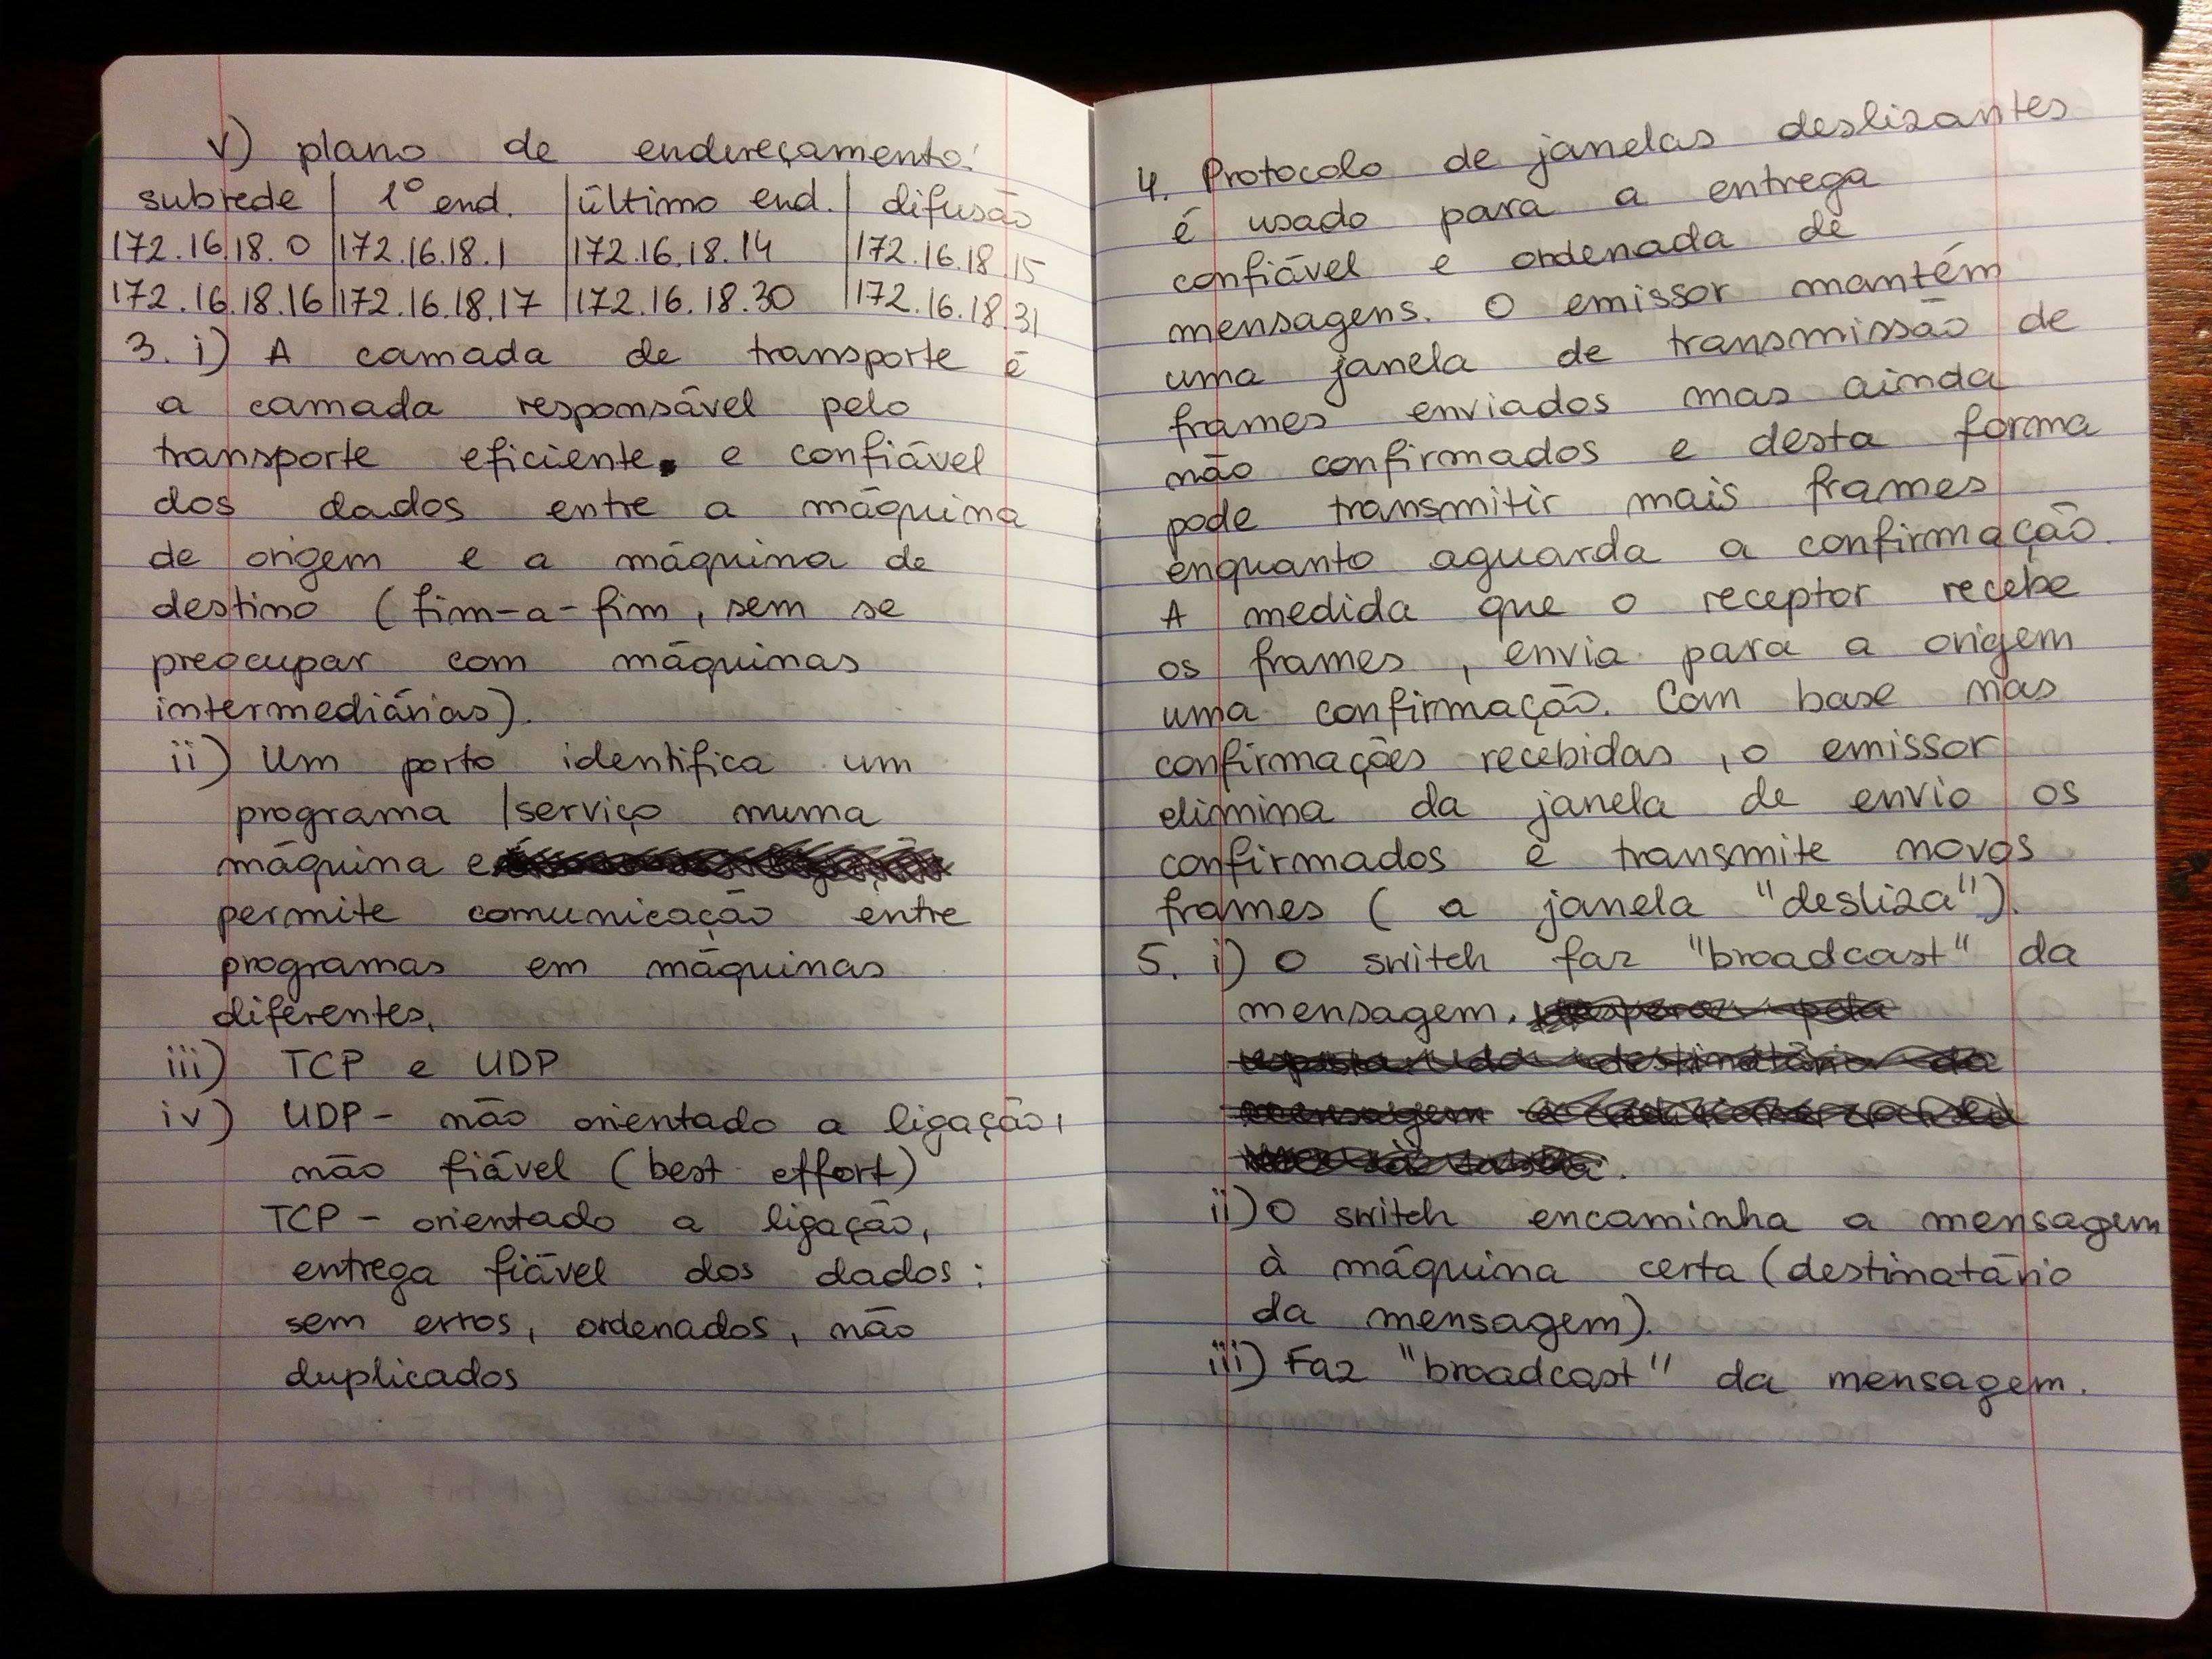 v) plano de endereçamento:
subrede | 1º end. | último end. | difusão
172.16.18.0 | 172.16.18.1 | 172.16.18.14 | 172.16.18.15
172.16.18.16 | 172.16.18.17 | 172.16.18.30 | 172.16.18.31
3. i) A camada de transporte é
a camada responsável pelo
transporte eficiente e confiável
dos dados entre a máquina
de origem e a máquina de
destino (fim-a-fim, sem se
preocupar com máquinas
intermediárias).
ii) Um porto identifica um
programa /serviço numa
máquina e
permite comunicação entre
programas em máquinas
diferentes.
iii) TCP e UDP
iv) UDP - não orientado a ligação,
não fiável (best effort)
TCP - orientado a ligação,
entrega fiável dos dados:
sem erros, ordenados, não
duplicados
4. Protocolo de janelas deslizantes
é usado para a entrega
confiável e ordenada de
mensagens. O emissor mantém
uma janela de transmissão de
frames enviados mas ainda
não confirmados e desta forma
pode transmitir mais frames
enquanto aguarda a confirmação.
A medida que o receptor recebe
os frames, envia para a origem
uma confirmação. Com base nas
confirmações recebidas, o emissor
elimina da janela de envio os
confirmados e transmite novos
frames ( a janela "desliza").
5. i) O switch faz "broadcast" da
mensagem.
ii) O switch encaminha a mensagem
à máquina certa (destinatário
da mensagem).
iii) Faz "broadcast" da mensagem.